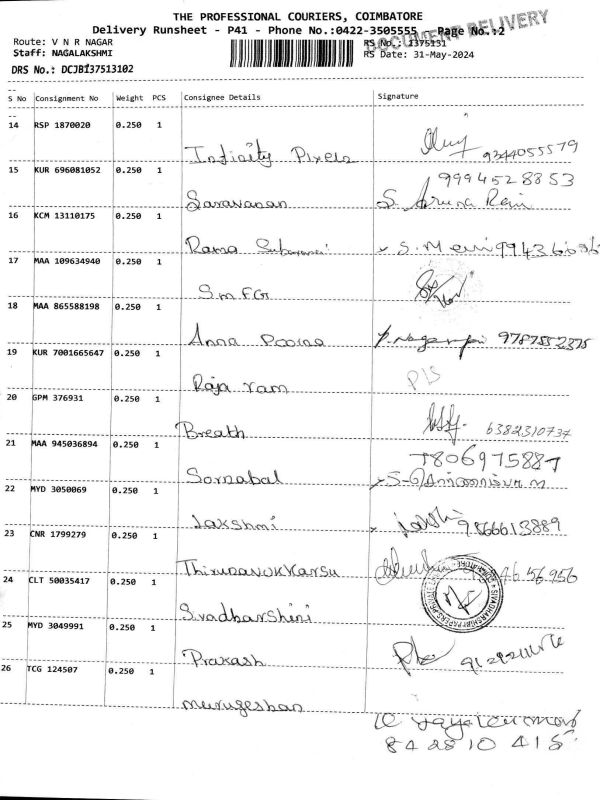 THE PROFESSIONAL COURIERS, COIMBATORE
Delivery Runsheet - P41 - Phone No.:0422-3505555 Page No.:2
DOCUMENT DELIVERY
Route: V N R NAGAR
RS No.: 1375131
Staff: NAGALAKSHMI
RS Date: 31-May-2024
DRS No.: DCJB137513102
S No Consignment No Weight PCS Consignee Details Signature
14 RSP 1870020 0.250 1
Infinity Pixels 9344055579
15 KUR 696081052 0.250 1
9994528853
Saravanan S. Aruna Rani
16 KCM 13110175 0.250 1
Rama S. Meni
17 MAA 109634940 0.250 1
S.M.F.G
18 MAA 865588198 0.250 1
Anna Poorna 9787552375
19 KUR 7001665647 0.250 1
Raja ram
20 GPM 376931 0.250 1
Breath 6382310737
21 MAA 945036894 0.250 1
7806975887
Sornabal
22 MYD 3050069 0.250 1
Lakshmi 9866613889
23 CNR 1799279 0.250 1
Thirunavukkarsu 46.56.956
24 CLT 50035417 0.250 1
Sivadharshini
SIVADHARSHINI PAPERS PRIVATE
25 MYD 3049991 0.250 1
Prakash
26 TCG 124507 0.250 1
Murugeshan
84 28 10 415